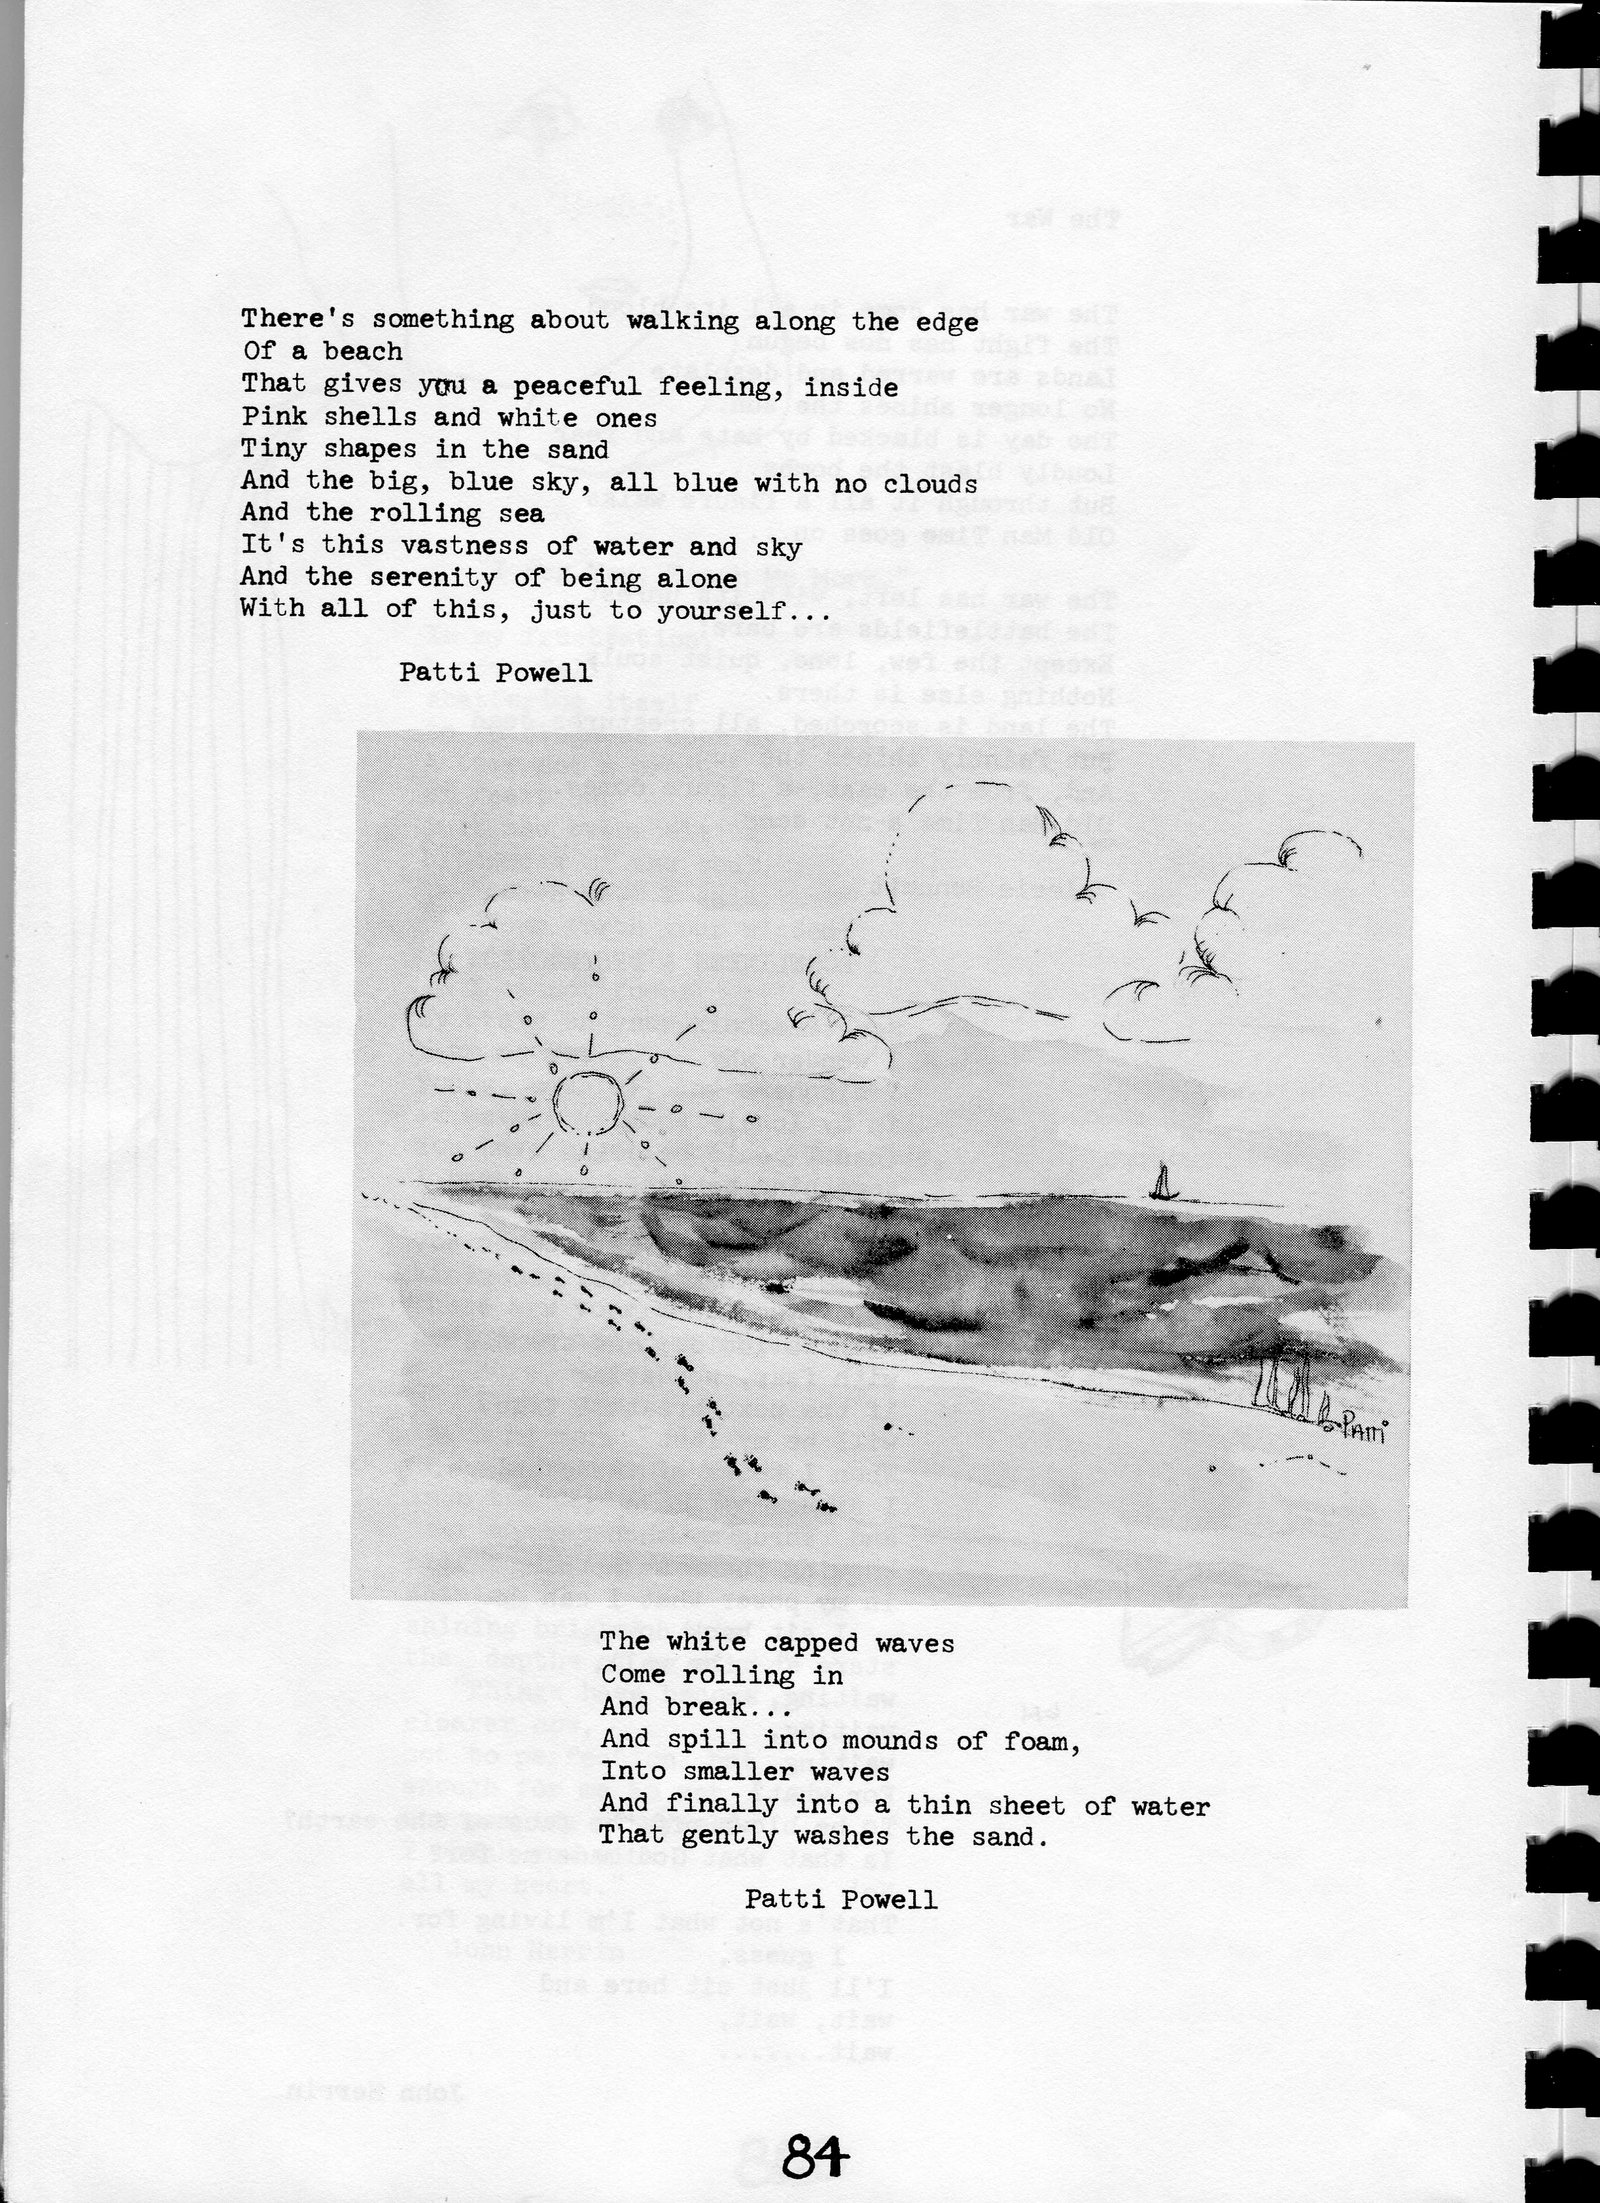 There's something about walking along the edge
Of a beach
That gives you a peaceful feeling, inside
Pink shells and white ones
Tiny shapes in the sand
And the big, blue sky, all blue with no clouds
And the rolling sea
It's this vastness of water and sky
And the serenity of being alone
With all of this, just to yourself...
Patti Powell
Patti
The white capped waves
Come rolling in
And break...
And spill into mounds of foam,
Into smaller waves
And finally into a thin sheet of water
That gently washes the sand.
Patti Powell
84